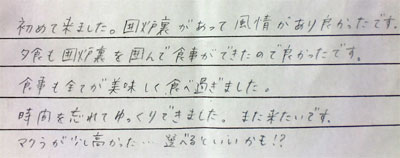 初めて来ました。囲炉裏があって風情があり良かったです。
夕食も囲炉裏を囲んで食事ができたので良かったです。
食事も全てが美味しく食べ過ぎました。
時間を忘れてゆっくりできました。また来たいです。
マクラが少し高かった…選べるといいかも!?